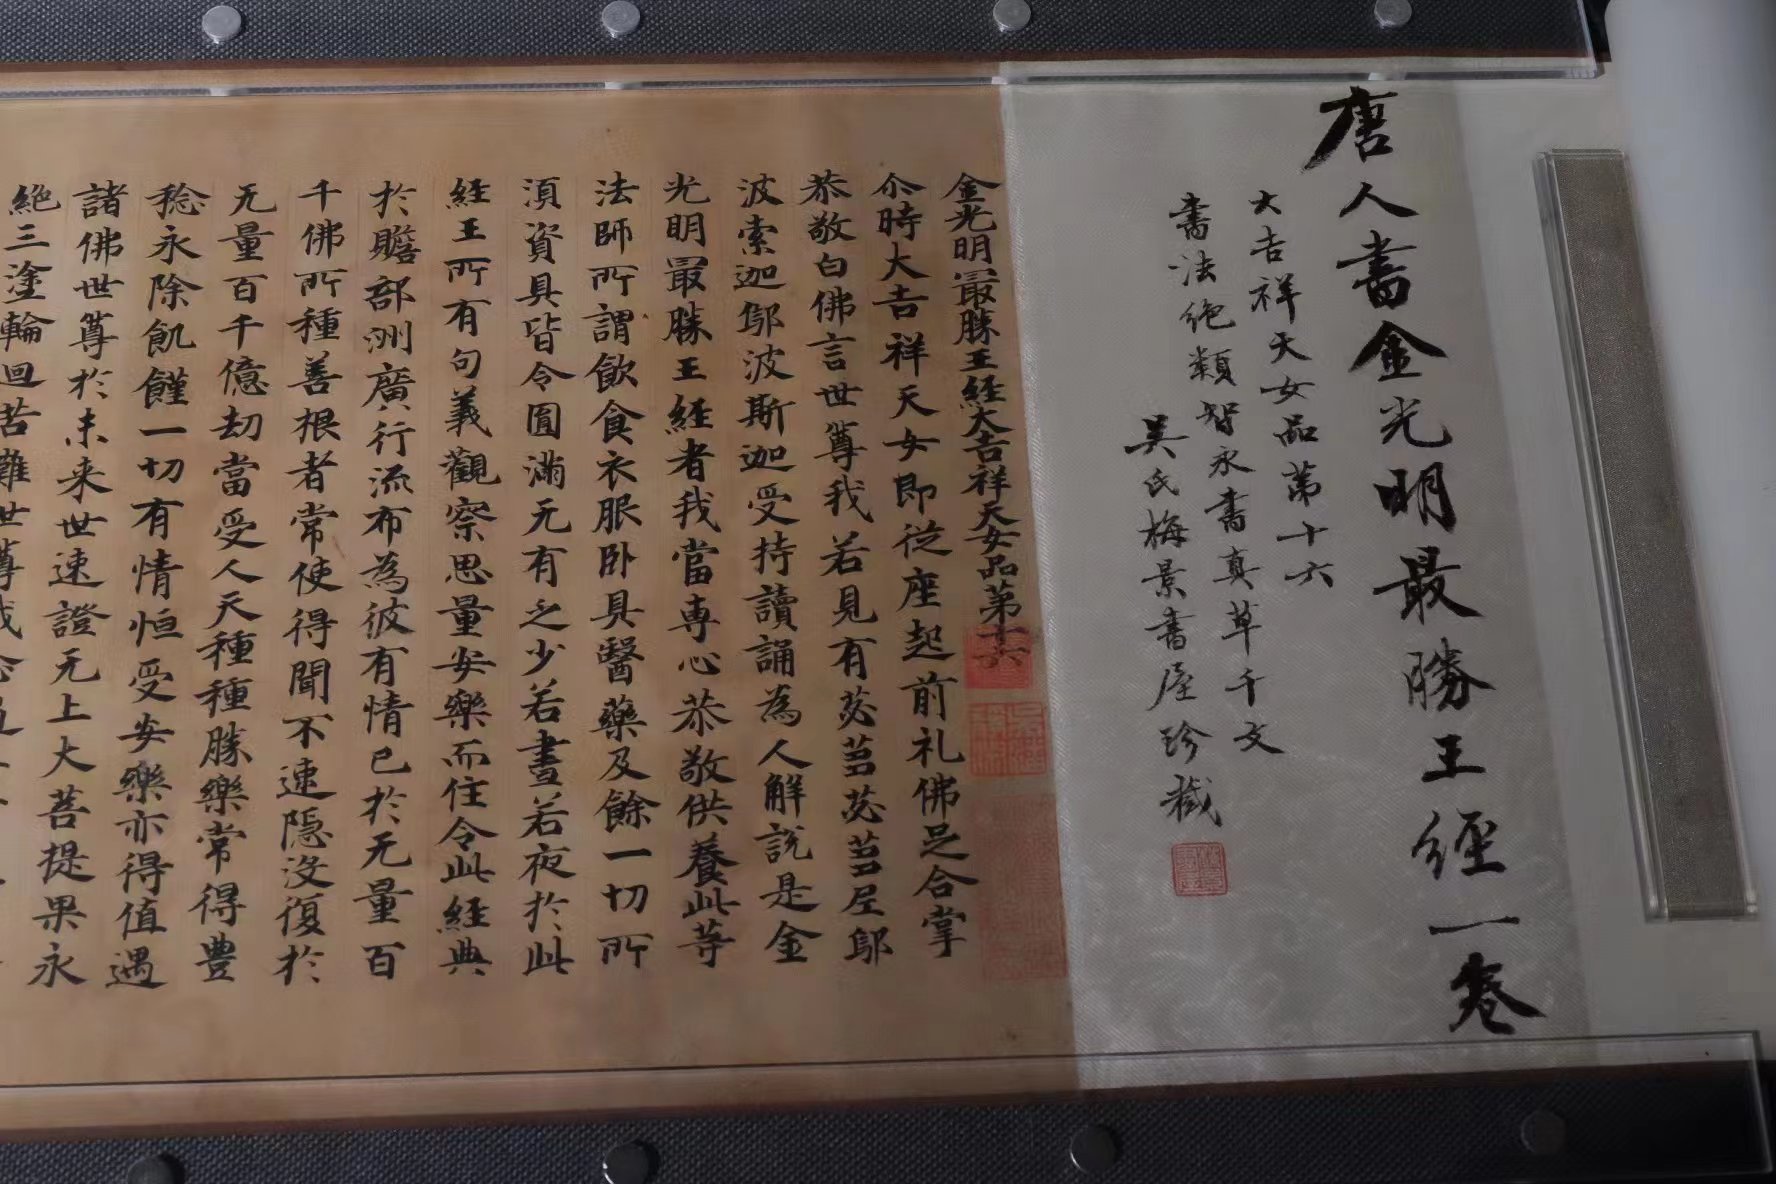 唐人書金光明最勝王經一卷
大吉祥天女品第十六
書法絕類智永書真草千文
吳氏梅景書屋珍藏
金光明最勝王經大吉祥天女品第十六
尒時大吉祥天女即從座起前礼佛足合掌
恭敬白佛言世尊我若見有苾芻苾芻尼鄔
波索迦鄔波斯迦受持讀誦為人解說是金
光明最勝王經者我當專心恭敬供養此等
法師所謂飲食衣服卧具醫藥及餘一切所
湏資具皆令圓滿无有乏少若晝若夜於此
經王所有句義觀察思量安樂而住令此經典
於贍部洲廣行流布為彼有情已於无量百
千佛所種善根者常使得聞不速隱沒復於
无量百千億劫當受人天種種勝樂常得豐
稔永除飢饉一切有情恒受安樂亦得值遇
諸佛世尊於未来世速證无上大菩提果永
絕三塗輪迴苦難世尊我念